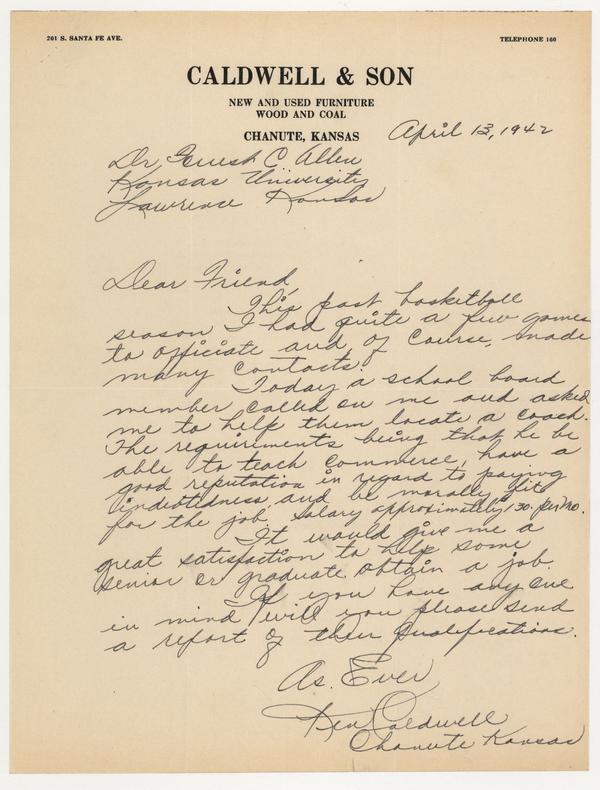 201 S. SANTA FE AVE.
TELEPHONE 160
CALDWELL & SON
NEW AND USED FURNITURE
WOOD AND COAL
CHANUTE, KANSAS
April 13, 1942
Dr Forrest C Allen
Kansas University
Lawrence Kansas
Dear Friend,
This past basketball
season I had quite a few games
to officiate and, of course, made
many contacts.
Today a school board
member called on me and asked
me to help them locate a coach.
The requirements being that he be
able to teach commerce, have a
good reputation in regard to paying
indebtedness, and be morally fit
for the job. Salary approximately 130. per mo.
It would give me a
great satisfaction to help some
senior or graduate obtain a job.
If you have any one
in mind will you please send
a report of their qualifications.
As Ever
Ken Caldwell
Chanute Kansas